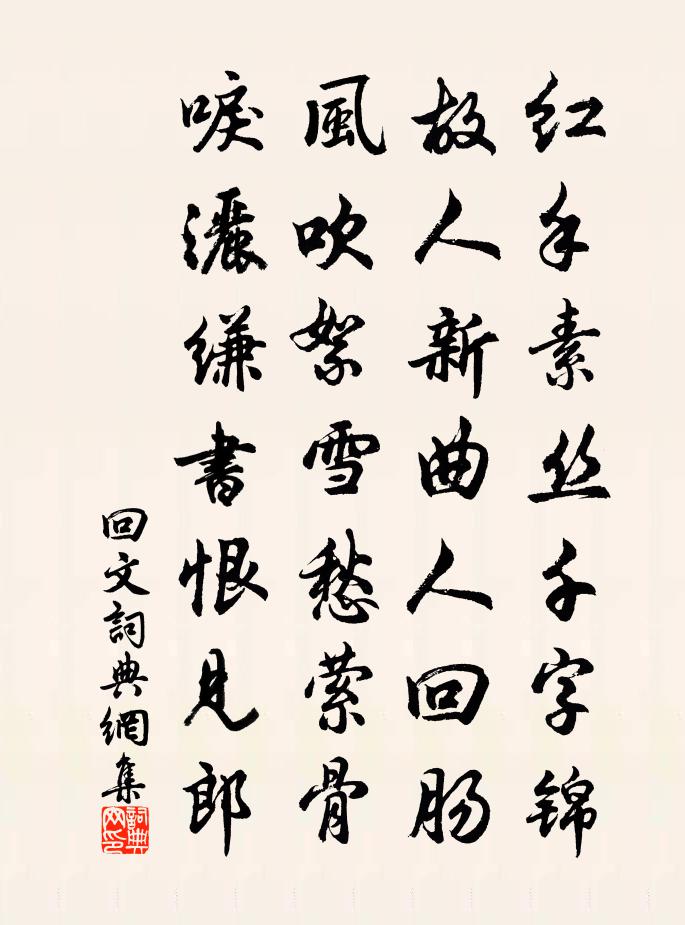 红手素丝千字锦
故人新曲人回肠
風吹絮雪愁萦骨
唳灑缣書恨见郎
回文詞典網集
詞典網印